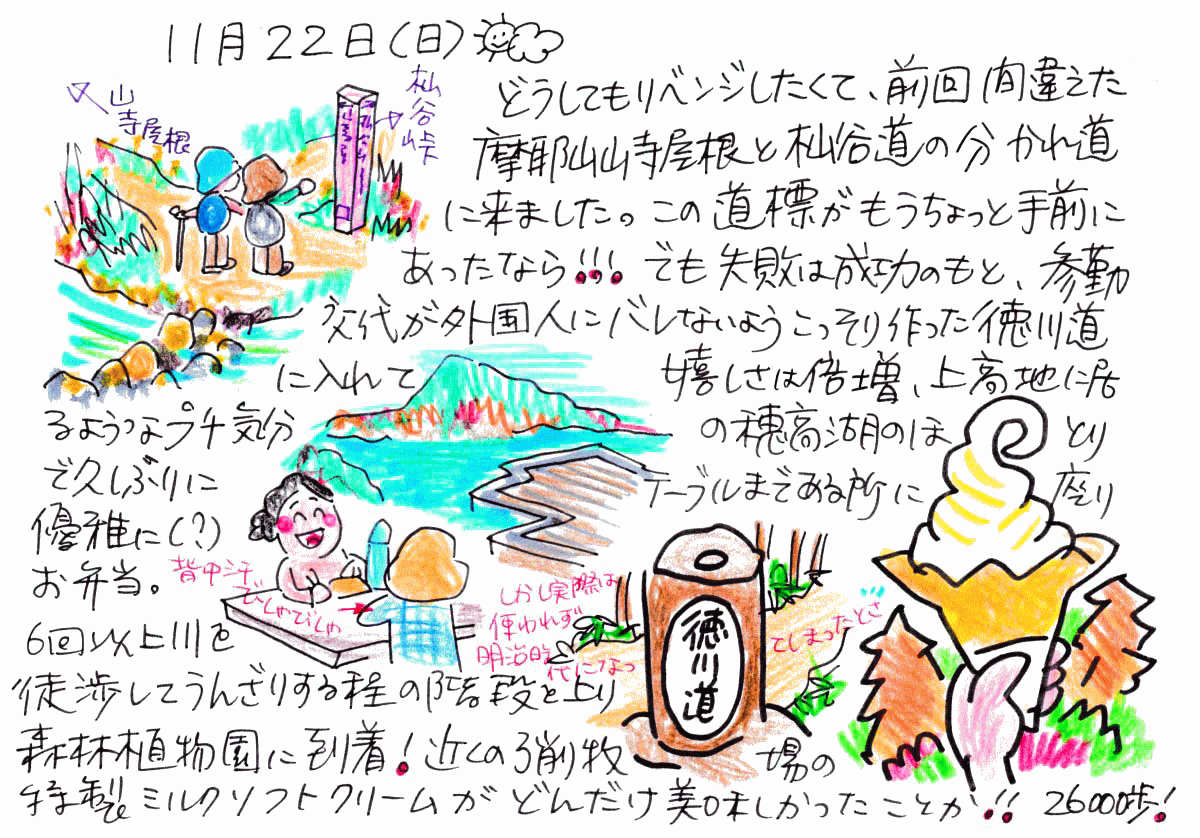 11月22日(日)
どうしてもリベンジしたくて、前回間違えた
摩耶山山寺屋根と杣谷道の分かれ道
に来ました。この道標がもうちょっと手前に
あったなら!!! でも失敗は成功のもと、参勤
交代が外国人にバレないようこっそり作った徳川道
に入れて嬉しさは倍増、上高地に居
るようなプチ気分の穂高湖のほとり
で久しぶりにテーブルまである所に座り
優雅に(?)
お弁当。
6回以上川を
徒渉してうんざりする程の階段を上り
森林植物園に到着!近くの弓削牧場の
特製ミルクソフトクリームがどんだけ美味しかったことか!! 26000歩!
山寺屋根
杣谷峠
背中シテ
びしゃびしゃ
しかし実際は
使われず
明治時代になっ
てしまったとさ
徳川道